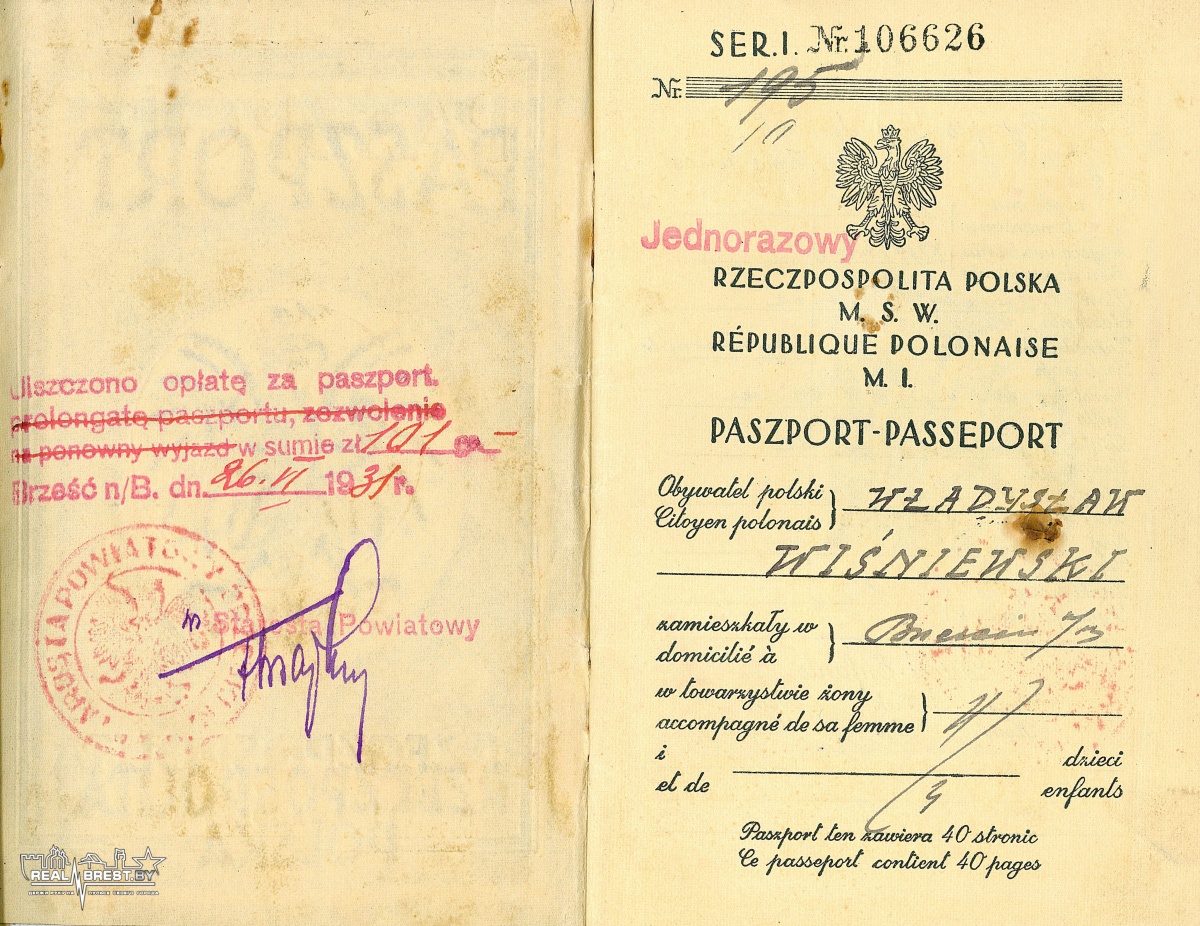 Uiszczono opłatę za paszport.
prolongatę paszportu, zezwolenie
na ponowny wyjazd w sumie zł 101 gr. –
Brześć n/B. dn. 26.VI 1931 r.
Starosta Powiatowy
REAL BREST.BY
SER. I. Nr. 106626
Nr. 195
10
Jednorazowy
RZECZPOSPOLITA POLSKA
M. S. W.
RÉPUBLIQUE POLONAISE
M. I.
PASZPORT-PASSEPORT
Obywatel polski
Citoyen polonais
WŁADYSŁAW
WIŚNIEWSKI
zamieszkały w
domicilié à
w towarzystwie żony
accompagné de sa femme
i
et de
dzieci
enfants
Paszport ten zawiera 40 stronic
Ce passeport contient 40 pages